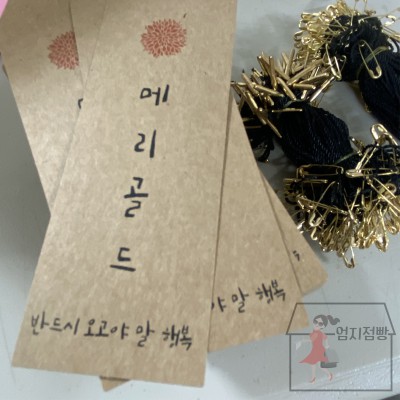 메
리
골
드
반드시 오고야 말 행복
야 말 행복
엄지점빵